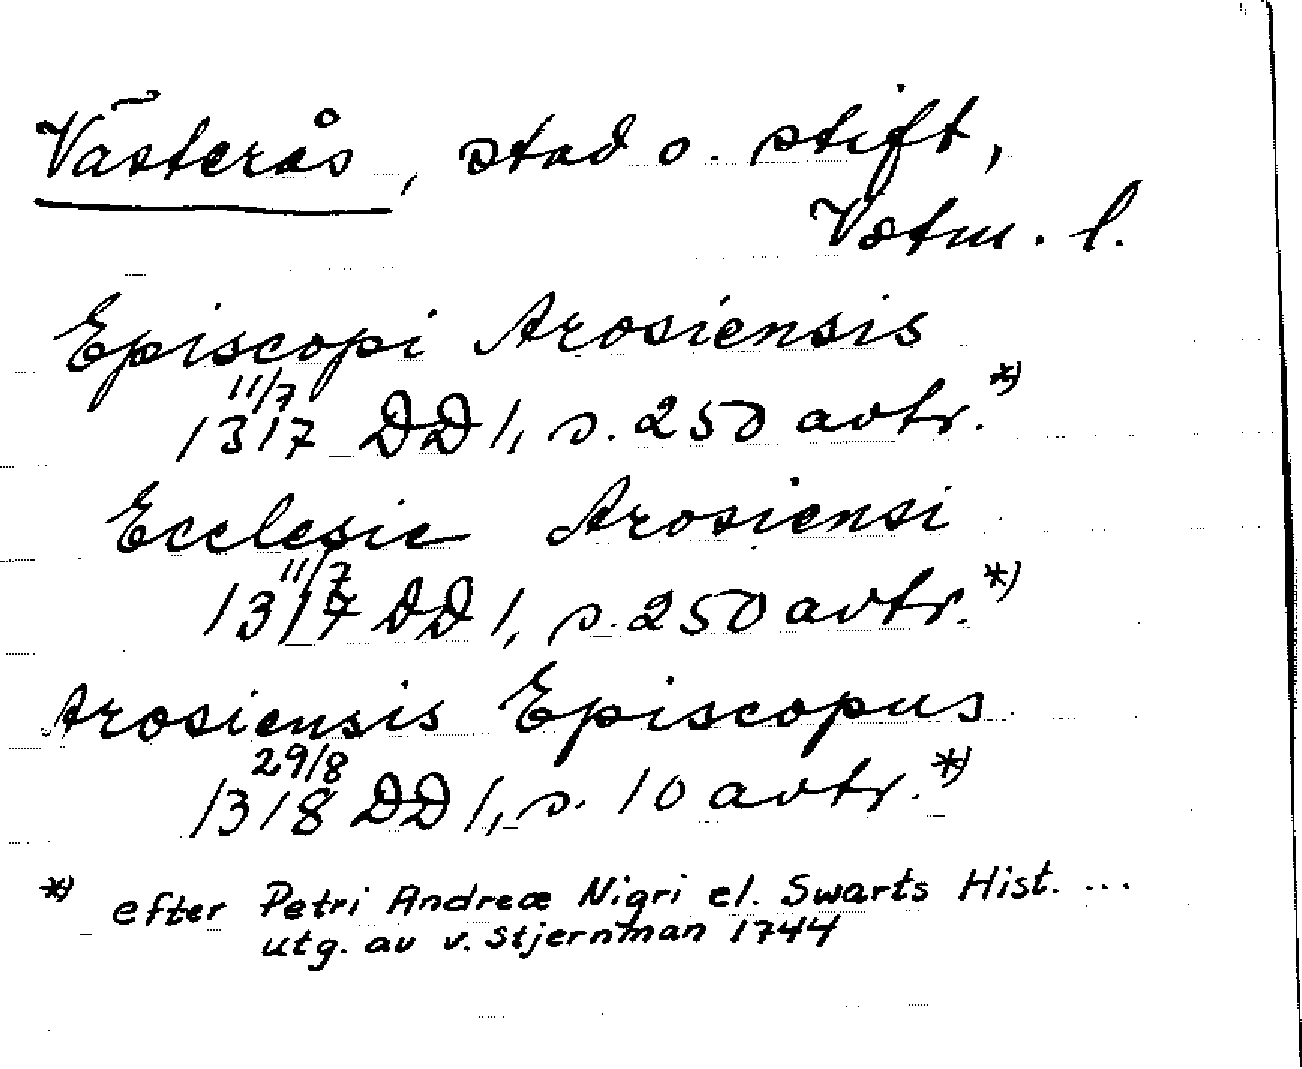 Västerås, stad o. stift,
Vstm. l.
Episcopi Arosiensis
11/7
1317 DD 1, s. 250 avtr. *)
Ecclesie Arosiensi
11/7
1317 DD 1, s. 250 avtr. *)
Arosiensis Episcopus
29/8
1318 DD 1, s. 10 avtr. *)
*) efter Petri Andreæ Nigri el. Swarts Hist. ...
utg. av v. Stjernman 1744